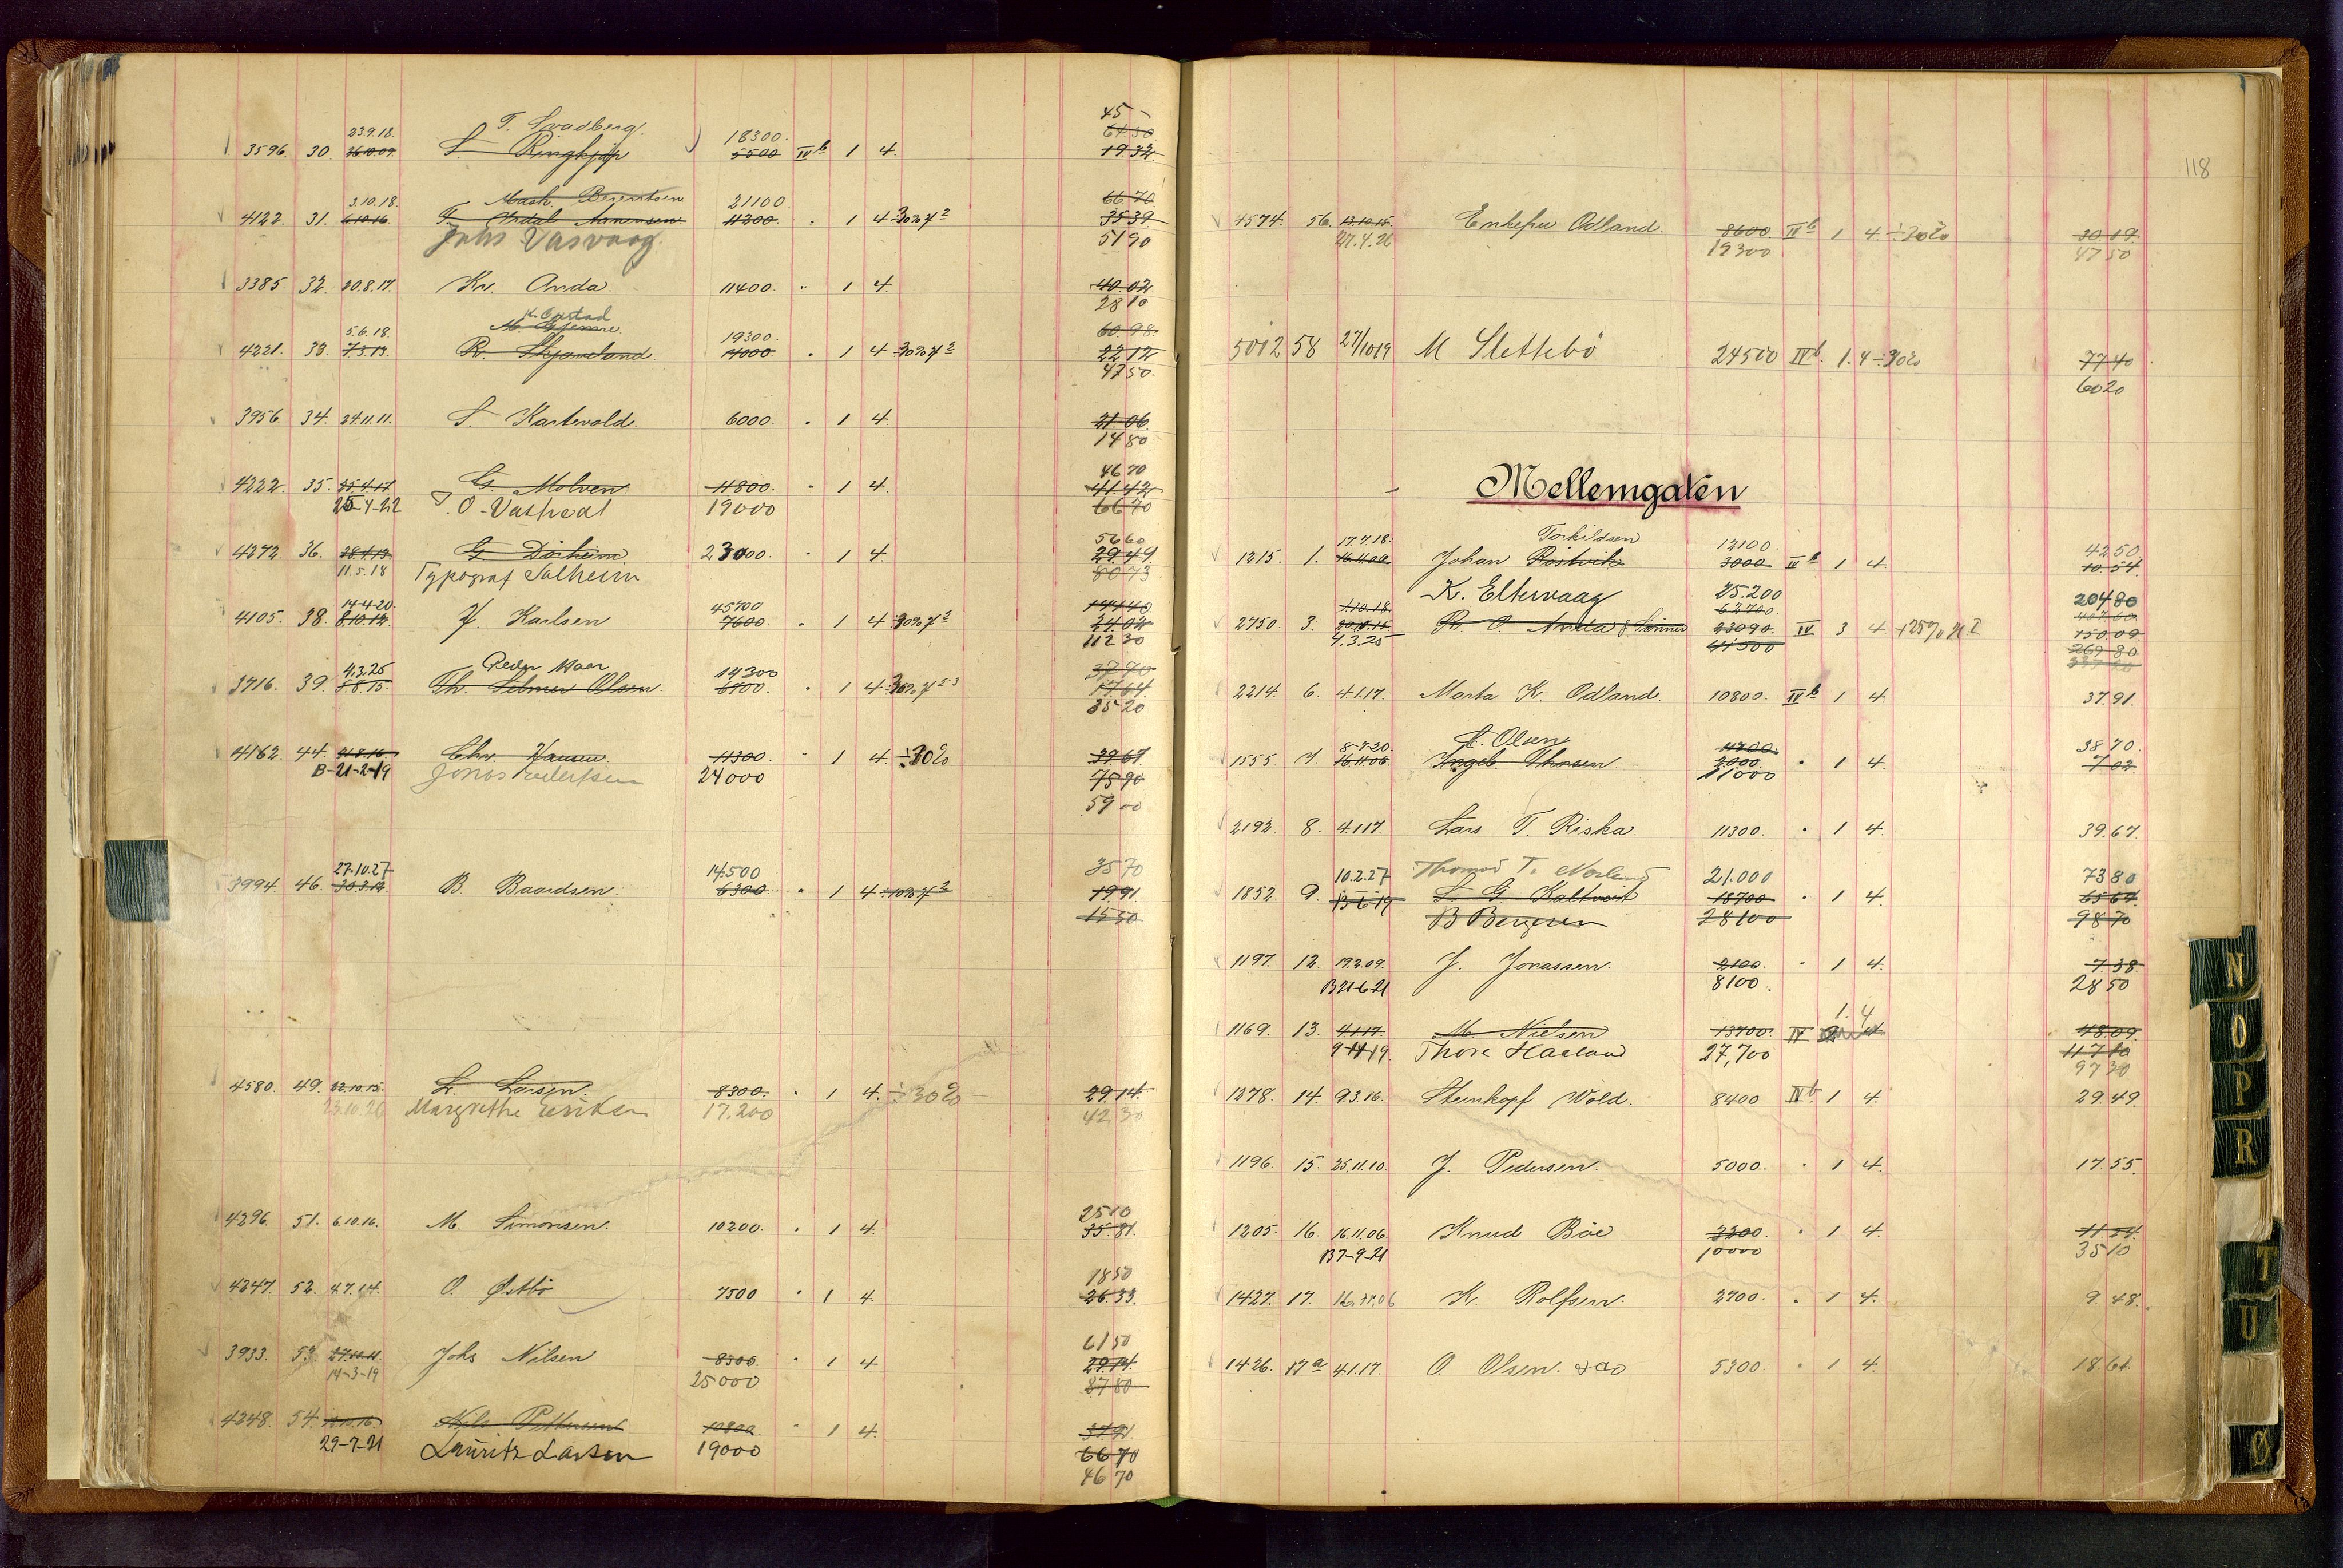 T. Svadberg. 45 –
23.9.18. 18300. 67 50
3596. 30 26.10.09. S. Ringkjøp 5500 IV b 1 4. 19.32
3.10.18. Math. Berentsen 21100. 66 70
4122. 31. 6.10.16 T. Årdal Aanensen 11200. " 1 4 30% 35.39
Johs Vasvaag 51 90
3385. 32. 20.8.17. Kr. Anda 11400. " 1 4. 40.02
28 10
5.6.18. M. Gjemre 19300. 60.98.
4221. 33. 7.3.13. R. Skjæveland 14000 " 1 4 30% 22 12
47 50.
3956. 34. 24.11.11. S. Kartevold. 6000. " 1 4. 21.06
14 80
46 70
4222. 35. 25.4.17 G. Molven 11800. " 1 4. 41 42
25-4-22 O. Vasshed 19000 66 70
56 60
4272. 36. 28.4.13 G. Dirheim 23000. " 1 4. 29.49
11.5.18 Typograf Salheim 80 73
14-4-20. 45700 144 40
4105. 38. 8.10.12. J. Karlsen 7600. " 1 4 30% 24 02
112 30
4.3.25 Peder Maar 14300 37 70
3716. 39. 8.8.15. Th. Selmer Olsen. 6800. " 1 4 30% 17 64
35 20
4162. 44. 21.8.16 Chr. Hansen 11300 " 1 4. ÷30% 39 67
B-21-2-19 Jonas 24000 75 90
59 00
27.10.27 14.500 35 70
3994. 46. 30.3.12 B. Baardsen. 6300. " 1 4 ÷10% 19.91
15 50
4580. 49. 22.10.15. L. Larsen. 8300. " 1 4. ÷30% 29.14
23.10.26 Margrethe Eriksen 17,200 42 30
25 10
4296. 51. 6.10.16. M. Simonsen. 10200. " 1 4. 35.81.
18 50
4247. 52. 4.7.14. O. Østbö 7500 " 1 4. 26 33.
61 50
3933. 53. 27.10.11. Johs Nilsen 8300. " 1 4 29.14
14-3-19 25000 87 80
4248. 54. 12.10.16 Nils Pettersen 10800 " 1 4. 37.91.
29-7-21 Lauritz Larsen 19000 66 70
46 70
118
4574. 56. 13.10.15. Enkefru Odland. 8600. IV b 1 4. ÷30% 30.19.
27.4.26 19300 47 50
5012 58 27/10 19 M Slettebö 24500 IV b. 1. 4 ÷30% 77 40
60 20
Mellemgaten
17.7.18. Torkildsen 12100. 42 50
1215. 1. 16.11.06 Johan Rostvik 3000 IV b 1 4 10.54.
K. Eltervaag 25.200 204 80
1.10.18. 62700. 407 60
2750. 3. 20.8.15 R. O. Anda & Sønner 23090. IV 3 4 +25% 150 09
4.3.25 41500 269 80
2214. 6. 4.1.17. Marta K. Odland. 10800. IV b 1 4. 37.91.
8-7-20. L. Olsen 11000 38 70.
1555. 7. 16.11.06 Ingeb. Thorsen. 2000. " 1 4. 7 02
11000
2192. 8. 4.1.17. Lars T. Riska 11300. " 1 4. 39.67.
10.2.27 Thomas T. Norland 21.000 73 80
1852. 9. B-6-19 L. G. Kaltveit 18700 " 1 4. 65 64
B Bergesen 28100 98 70
1197. 12. 19.2.09. J. Jonassen. 2100. " 1 4. 7 38
B 21-6-21 8100. 28 50
1. 4
1169. 13. 4.1.17. M. Nielsen 13700. IV 48.09
9-11-19 Thore Haaland 27,700 117 10
97 30
1278. 14. 9.3.16. Steinkopf Wold. 8400 IV b. 1 4. 29.49.
1196. 15. 25.11.10. J. Pedersen. 5000. " 1 4. 17.55.
1205. 16. 16.11.06 Knud Böe 3300. " 1 4. 11.54.
B 7-9-21 10000 35 10
1427. 17. 16.11.06 K. Rolfsen. 2700. " 1 4. 9.48.
1426. 17 a 4.1.17. O. Olsen. & Co 5300. " 1 4. 18.61.
N
O
P
R
T
U
Ø